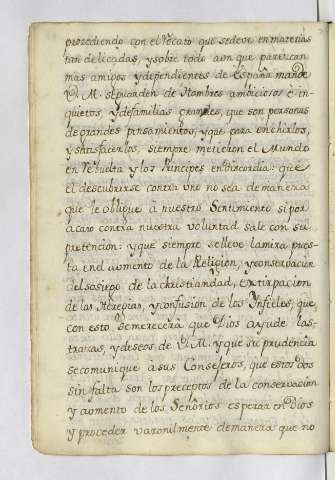 procediendo con el Recato que sedeve en materias
tan delicadas, y sobre todo aun que parezcan
mas amigos y dependientes de España mande
V. M. se guarden de Hombres ambiciosos é in-
quietos, y de familias grandes, que son personas
de grandes pensamientos, y que para enchirlos,
y satisfacerlos, siempre metieron el Mundo
en Rebuelta y los Principes en Discordia: que
el descubrirse contra uno no sea de manera
que le oblique à nuestro Sentimiento si por
acaso contra nuestra voluntad sale con su
pretencion: y que siempre se lleve la mira pues-
ta en el aumento de la Religion, y conservacion
del sosiego de la christiandad, extirpacion
de las Heregias, y confusion de los Infieles, que
con esto se merecerà que Dios ayude las
trazas, y deseos de V. M. y que su prudencia
se comunique à sus Consejeros, que estos dos
sin falta son los preceptos de la conservacion
y aumento de los Señorios esperar en Dios
y proceder varonilmente de manera que no